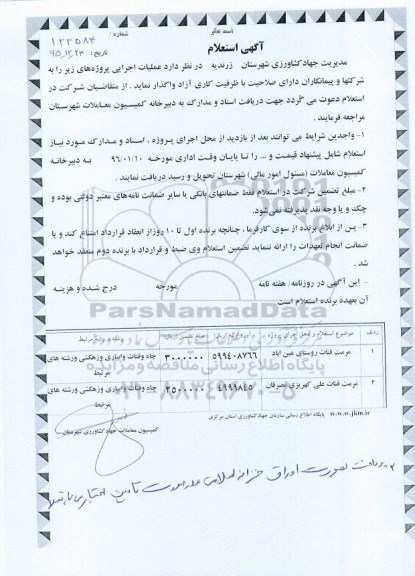 باسمه تعالی
شماره: ۱۲۲۵۸۴
تاریخ: ۹۵,۱۲,۲۴
آگهی استعلام
مدیریت جهادکشاورزی شهرستان زرندیه در نظر دارد عملیات اجرایی پروژه‌های زیر را به
شرکتها و پیمانکاران دارای صلاحیت با ظرفیت کاری آزاد واگذار نماید . از متقاضیان شرکت در
استعلام دعوت می گردد جهت دریافت اسناد و مدارک به دبیرخانه کمیسیون معاملات شهرستان
مراجعه فرمایند .
۱- واجدین شرایط می توانند بعد از بازدید از محل اجرای پروژه ، اسناد و مدارک مورد نیاز
استعلام شامل پیشنهاد قیمت و ... را تا پایان وقت اداری مورخه ۹۶/۰۱/۱۰ به دبیرخانه
کمیسیون معاملات (مسئول امور مالی) شهرستان تحویل و رسید دریافت نمایند .
۲- مبلغ تضمین شرکت در استعلام فقط ضمانتهای بانکی یا سایر ضمانت نامه‌های معتبر دولتی بوده و
چک و یا وجه نقد پذیرفته نمی‌شود.
۳- پس از ابلاغ برنده از سوی کارفرما، چنانچه برنده اول تا ۱۰ روز از انعقاد قرارداد امتناع کند و یا
ضمانت انجام تعهدات را ارائه ننماید تضمین استعلام وی ضبط و قرارداد با برنده دوم منعقد خواهد
شد .
- این آگهی در روزنامه/ هفته نامه مورخه درج شده و هزینه
آن بعهده برنده استعلام است
ParsNamadData
پایگاه اطلاع رسانی مناقصه و مزایده
ردیف موضوع استعلام و محل اجرای پروژه
۱ مرمت قنات روستای عین اباد ۵۹۹۴۰۸۷۶۶ ۳۰۰۰۰۰۰۰ چاه وقنات وابیاری وزهکشی ورشته های مرتبط
۲ مرمت قنات علی کهریزی نصرقان ۴۹۹۹۸۴۵ ۲۵۰۰۰۰۰۰ چاه وقنات وابیاری وزهکشی ورشته های مرتبط
www.jkm.ir پایگاه اطلاع رسانی سازمان جهادکشاورزی استان مرکزی
کمیسیون معاملات جهادکشاورزی شهرستان
پرداخت بصورت اوراق خزانه اسلامی و در صورت تامین اعتبار می باشد